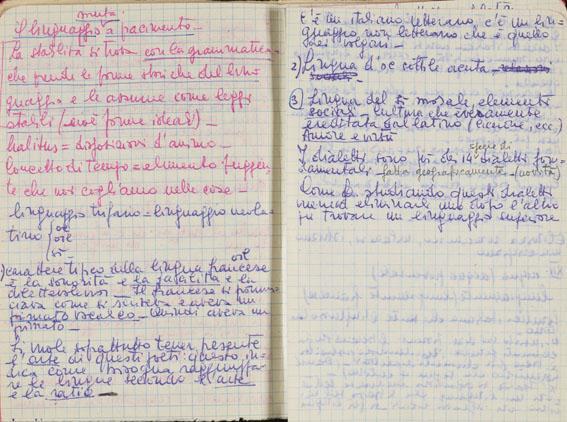 muta
Il linguaggio a pacimento –
La stabilità si trova con la grammatica
che prende le forme storiche del lin-
guaggio e le assume come leggi
stabili (cioè forme ideali)
habitus = disposizioni d'animo –
Concetto di tempo = elemento fuggen-
te che noi cogliamo nelle cose –
linguaggio trifario = linguaggio neola-
tino
oc
oïl
sì
1) carattere tipico della lingua francese
oïl
è la sonorità e la
– Il francese si pronun-
ciava come si scriveva e aveva un
primato vocalico – Quindi aveva un
primato –
Si vuole soprattutto tener presente
l'arte di questi poeti: questo in-
dica come bisogna raggruppa-
re le lingue secondo l'arte
e la ratio –
C'è un italiano letterario, c'è un lin-
guaggio non letterario che è quello
dei volgari –
2) Lingua d'oc sottile acuta –
3) Lingua del sì – morale, elementi
sociali – cultura che
ereditata dal latino (Cicerone, ecc.)
Amore e virtù
specie di
I dialetti sono più di 14 dialetti fon-
damentali – fatto geograficamente – (novità)
Come si studiando questi dialetti
eliminare uno dopo l'altro
trovare un linguaggio superiore